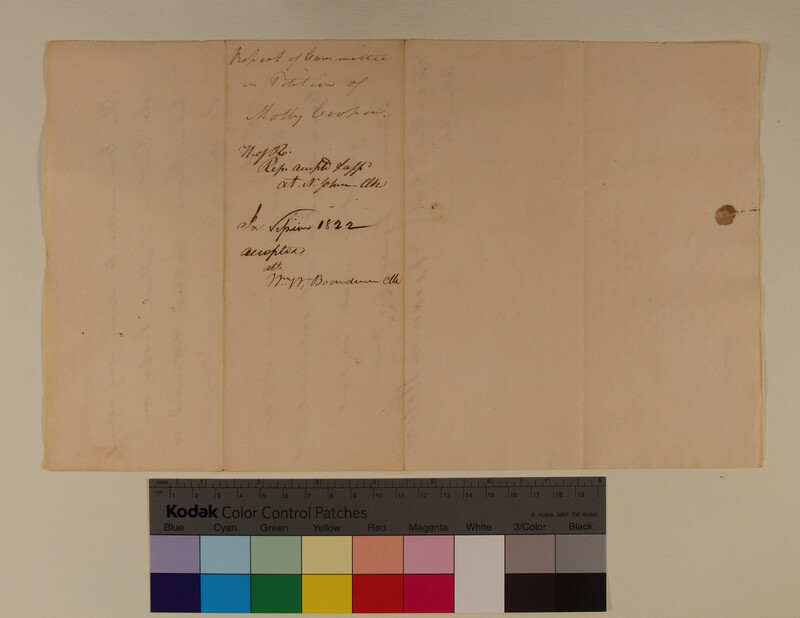 Report of Committee
on Petition of
Molly Cooper.
H of Re.
Repr accepted & appd
at. N. Johnson Clk
In Senate 1822
accepted
att.
Wm W, Boardman Clk
Kodak Color Control Patches
© Kodak, 2007 TM: Kodak
Blue Cyan Green Yellow Red Magenta White 3/Color Black
inches 1 2 3 4 5 6 7 8
cm 1 2 3 4 5 6 7 8 9 10 11 12 13 14 15 16 17 18 19